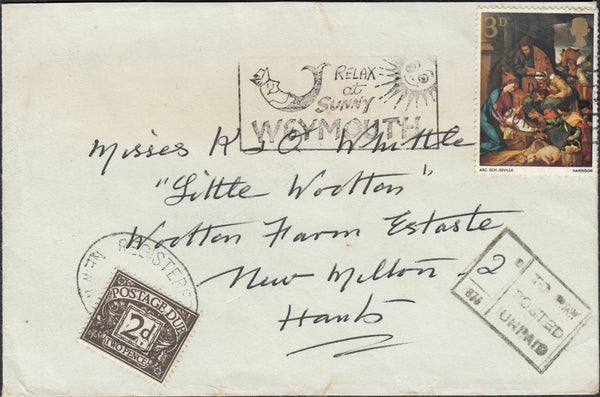 3D
RELAX
at
SUNNY
WEYMOUTH
ADC. SCH. SEVILLE HARRISON
Misses K & O Whittle
"Little Wootton"
Wootton Farm Estate
New Milton
Hants
REGISTERE
POSTAGE DUE
2d.
TWO PENCE
TO PAY
POSTED
UNPAID